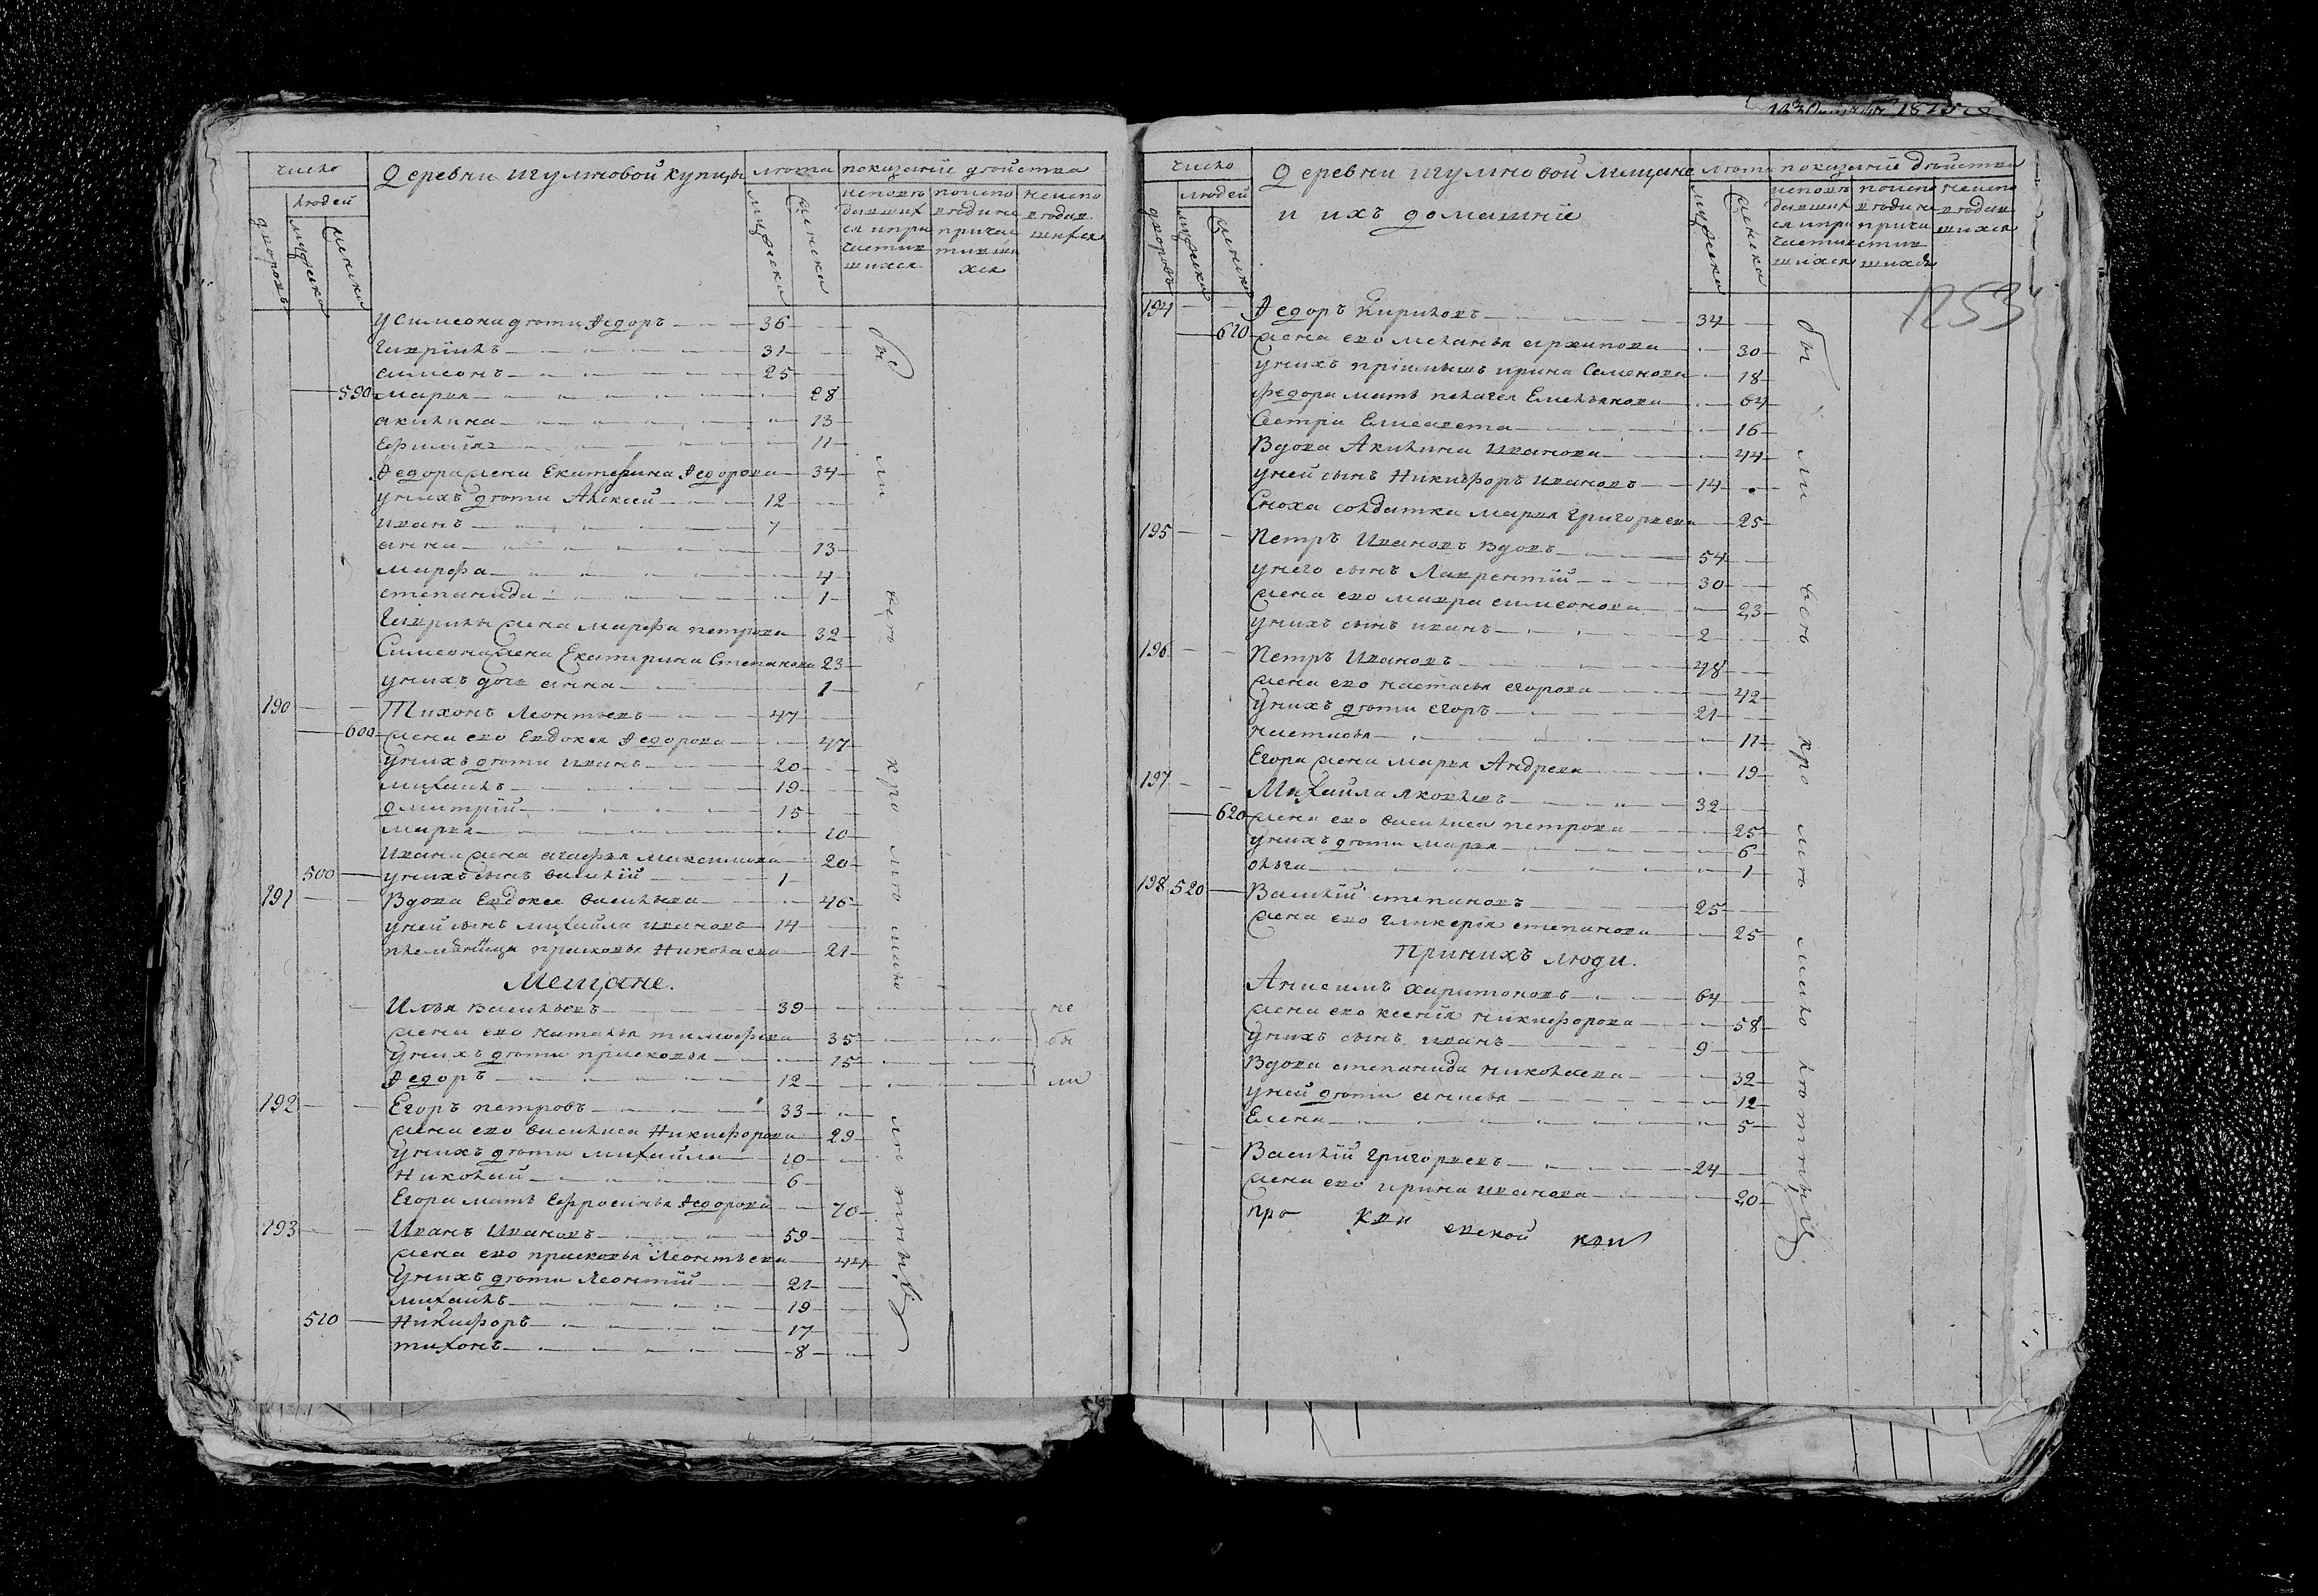 число
Деревни игумновой купцы
лѣта
показаніе дѣйства
людей
дворовъ
мужска
женска
мужска
женска
исповѣ
давших
ся и при
частив
шихся
поиспо
вѣдыва
причас
тивши
хся
неиспо
вѣдав
шихся
у Симеона дѣти Ѳедоръ 36
Гаврiилъ 31
симеонъ 25
590 марья 28
акилина 13
Ефимiя 11
Ѳедора жена Екатерина Ѳедорова 34
у нихъ дѣти Алексей 12
иванъ 7
анна 13
марфа 4
степанида 1
Гаврилы жена марфа петрова 32
Симеона жена Екатерина Степанова 23
у нихъ дочь анна 1
190 Тихонъ Леонтьевъ 47
600 жена ево Евдокея Ѳедорова 47
у нихъ дѣти иванъ 20
михаилъ 19
дмитрiй 15
марья 10
ивана жена агафья максимова 20
500 у нихъ сынъ василiй 1
191 Вдова Евдокея васильева 46
у ней сынъ михайла ивановъ 14
племѣнница прасковья Николаева 21
Мещане.
Илья васильевъ 39
жена ево наталья тимофева 35
у нихъ дѣти прасковья 15
Ѳедоръ 12
не
бы
ли
192 Егоръ петровъ 33
жена ево василиса Никифорова 29
у нихъ дѣти михайла 10
Николай 6
Егора мать Ефросинья Ѳедорова 70
193 Иванъ Ивановъ 59
жена ево прасковья Леонтьева 44
у нихъ дѣти Леонтiй 21
михаилъ 19
510 Никифоръ 17
тихонъ 8
бы ли всѣ кро мѣ мало лѣ тныхъ
1253
число
Деревни игумновой мещане
и ихъ домашнiе
лѣта
показанiе дѣйства
людей
дворовъ
мужска
женска
мужска
женска
исповѣ
давших
ся и при
частив
шихся
поиспо
вѣдыва
прича
стив
шихся
неиспо
вѣдав
шихся
194 Ѳедоръ Кириловъ 34
610 жена ево меланья архипова 30
у нихъ прiимышъ ирина Семенова 18
Федора мать пелагея Емельянова 64
Сестра Елисавета 16
Вдова Акилина иванова 44
у ней сынъ Никифоръ ивановъ 14
Сноха солдатка марья григорьева 25
195 Петръ Ивановъ вдовъ 54
у него сынъ Лаврентiй 30
жена ево мавра симеонова 23
у нихъ сынъ иванъ 2
196 Петръ Ивановъ 48
жена ево настасья егорова 42
у нихъ дѣти егоръ 21
настасья 11
Егора жена марья Андрева 19
197 Михайла яковлевъ 32
620 жена ево василиса петрова 25
у нихъ дѣти марья 6
ольга 1
198 520 Василiй степановъ 25
жена ево гликерiя степанова 25
При нихъ люди.
Анисимъ харитоновъ 64
жена ево ксенiя никифорова 58
у нихъ сынъ иванъ 9
Вдова степанида николаева 32
у ней дѣти анисья 12
Елена 5
Василiй григорьевъ 24
жена ево ирина иванова 20
бы ли всѣ кро мѣ мало лѣ тныхъ